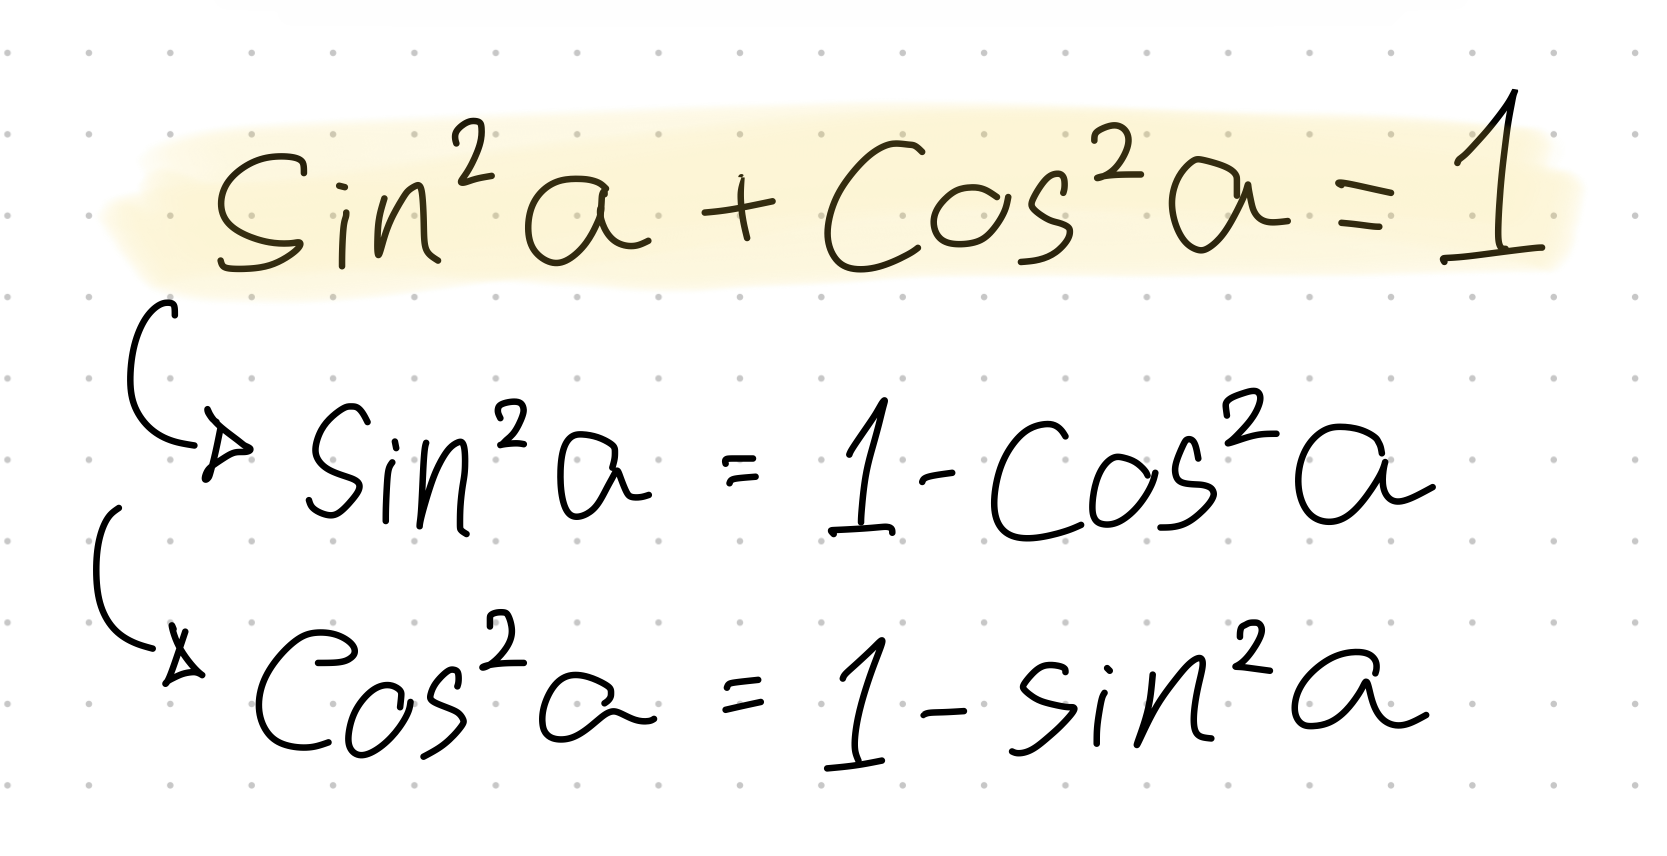 Sin²a + Cos²a = 1
Sin²a = 1 - Cos²a
Cos²a = 1 - sin²a